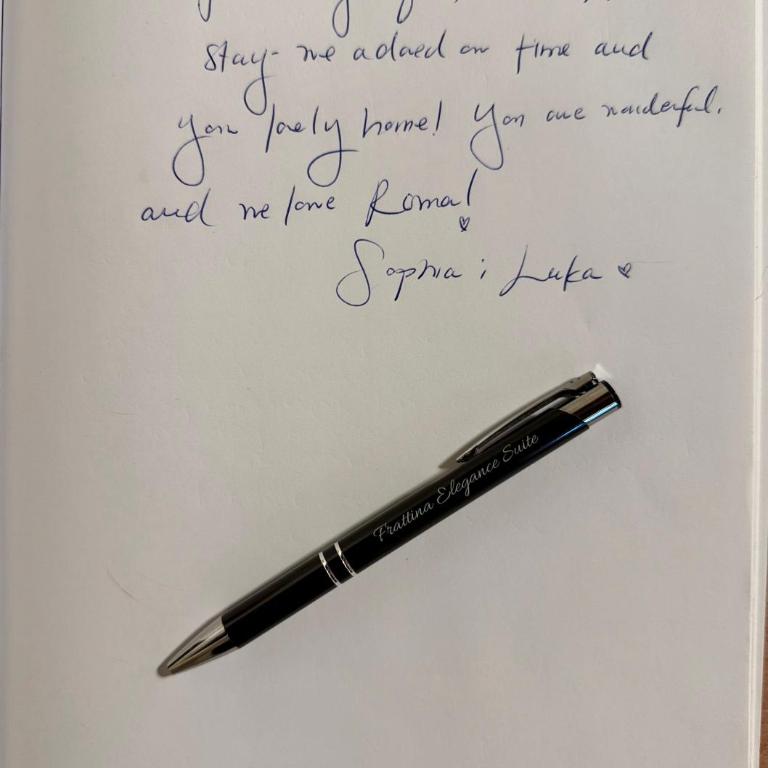 stay - we adored our time and
your lovely home! You are wonderful.
and we love Roma!
Sophia i Luka
Frattina Elegance Suite